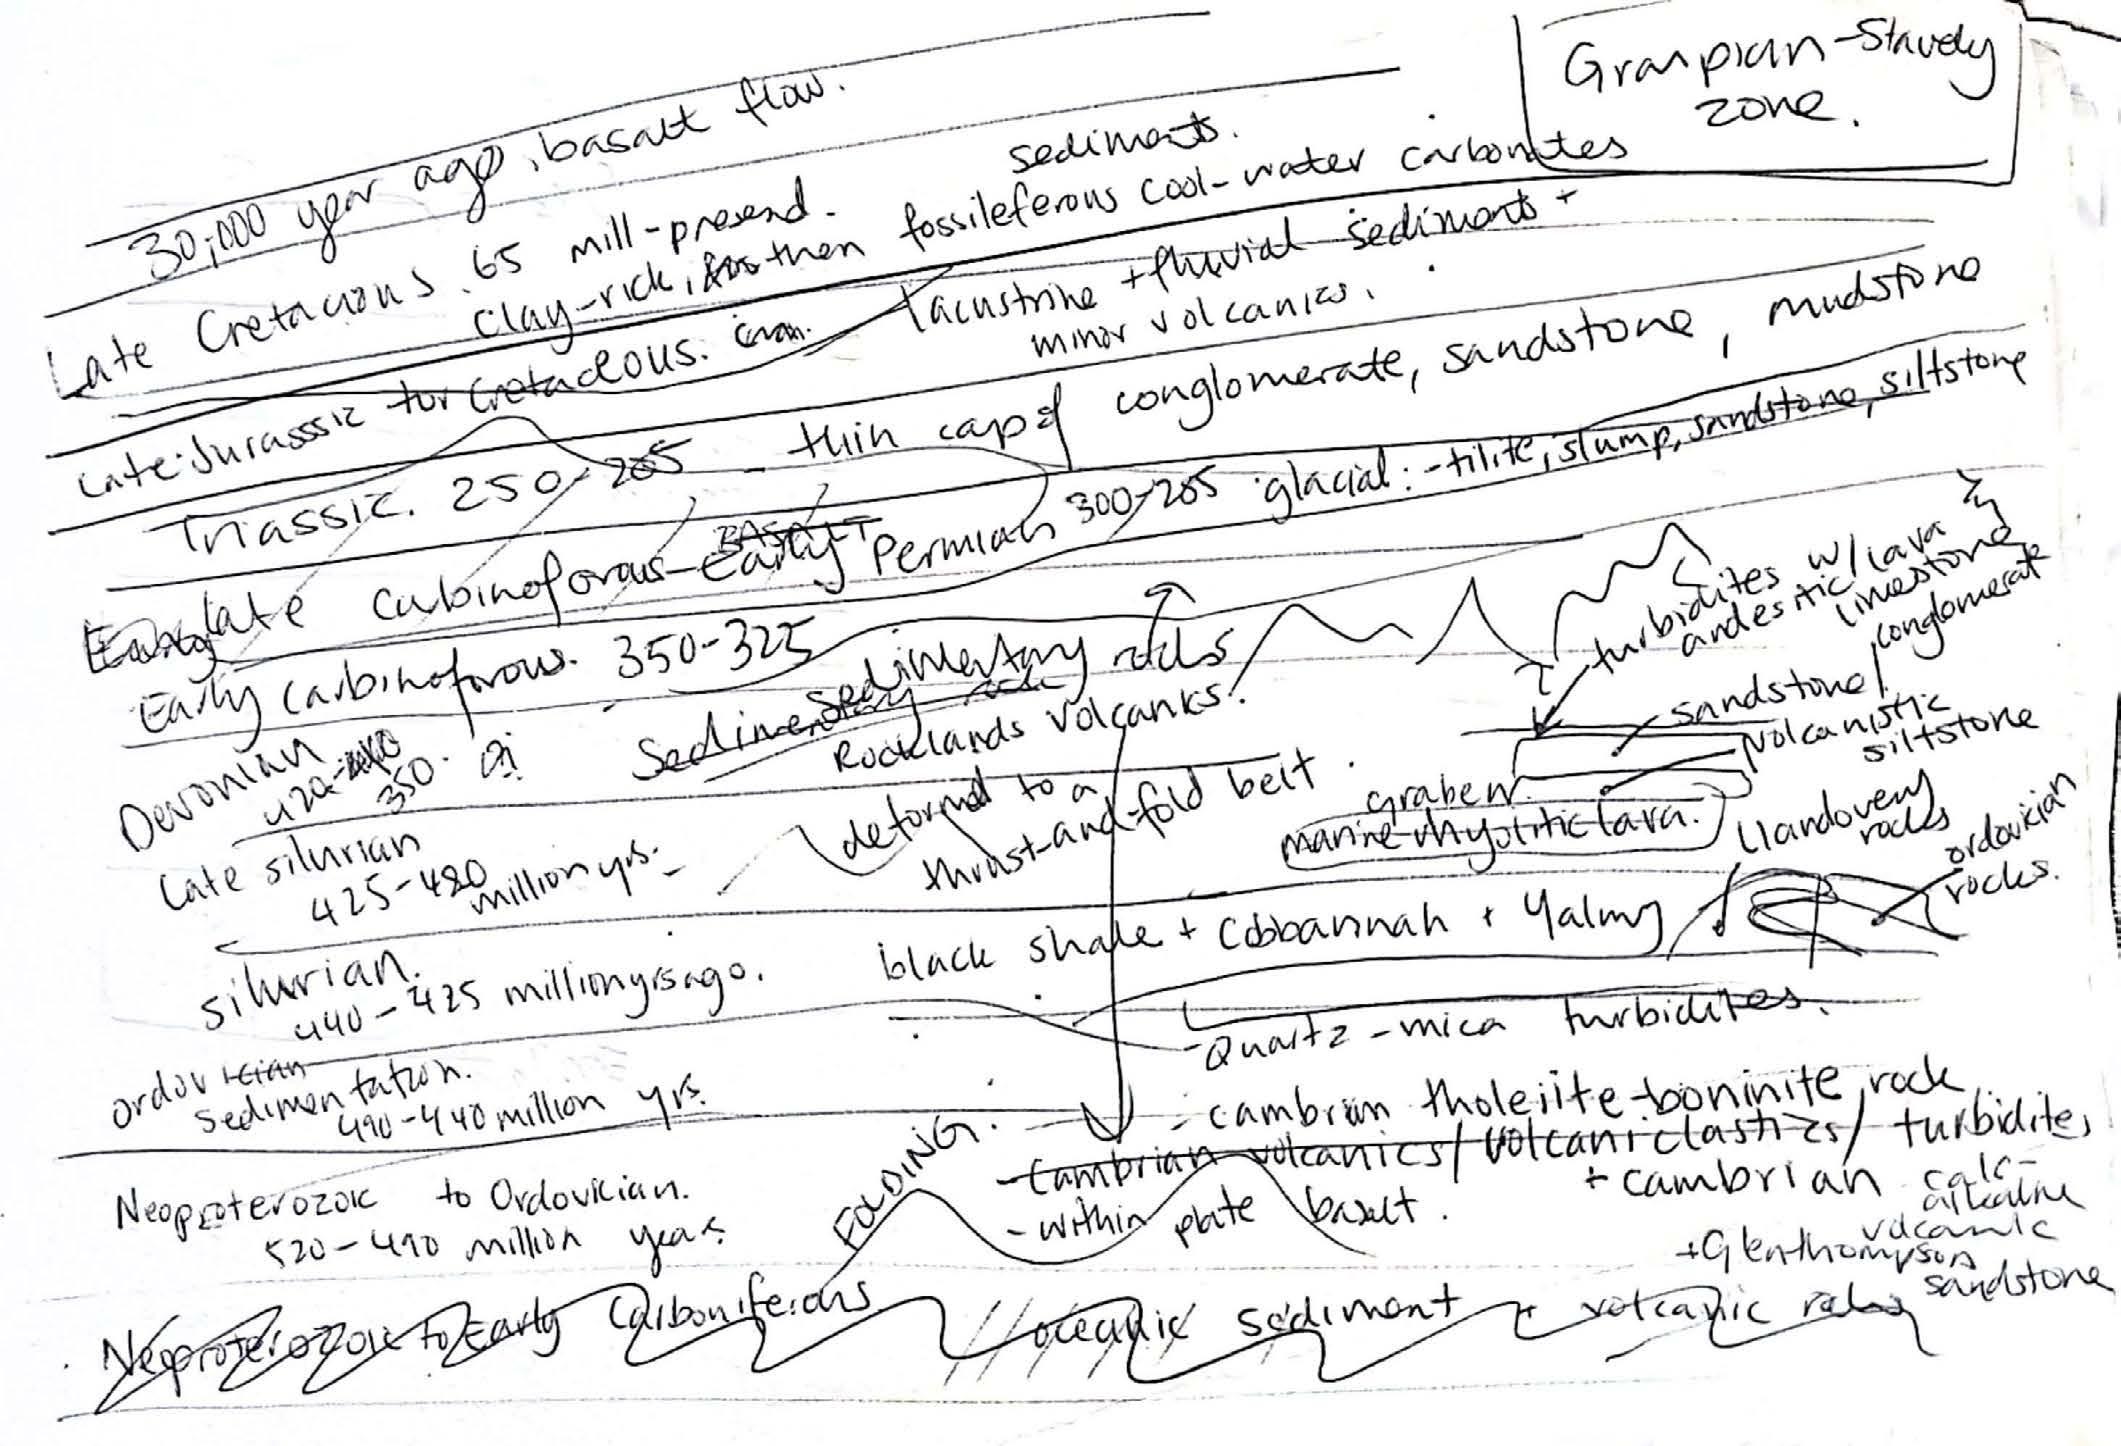 Grampian-Stavely
zone.
30,000 year ago, basalt flow.
Late Cretacious 65 mill-present.
sediments.
clay-rich, then fossileferous cool-water carbonates
Late Jurasssic to Cretaceous.
lacustrine + fluvial sediments +
minor volcanics.
Triassic. 250-205 - thin cap of conglomerate, sandstone, mudstone
BASALT
late Carbinoforous-Early Permian 300-265 glacial: -tilite, slump, sandstone, siltstone
Early carbinoforous. 350-325
Sedimentary rocks
Sedimentary rocks
Rocklands volcanics.
Devonian
420-
350.
turbidites w/lava
andesitic
limestone
conglomerat
sandstone/
volcanistic
siltstone
graben
marine rhyolitic lava.
Llandovery
rocks
ordovician
rocks.
Late silurian
425-420
million yrs.
deformed to a
thrust-and-fold belt.
silurian.
440-425 million yrs ago.
black shale + Cobbannah + Yalmy
ordovician
sedimentation.
490-440 million yrs.
-Quartz-mica turbidites.
Neoproterozoic to Ordovician.
520-490 million years
FOLDING.
- cambrian tholeiite-boninite rock
-Cambrian volcanics/volcaniclastics/ turbidites
- within plate basalt.
+ cambrian calc-
alkaline
volcanic
+Glenthompson
sandstone
Neoproterozoic to Early Carboniferous oceanic sediment + volcanic rocks